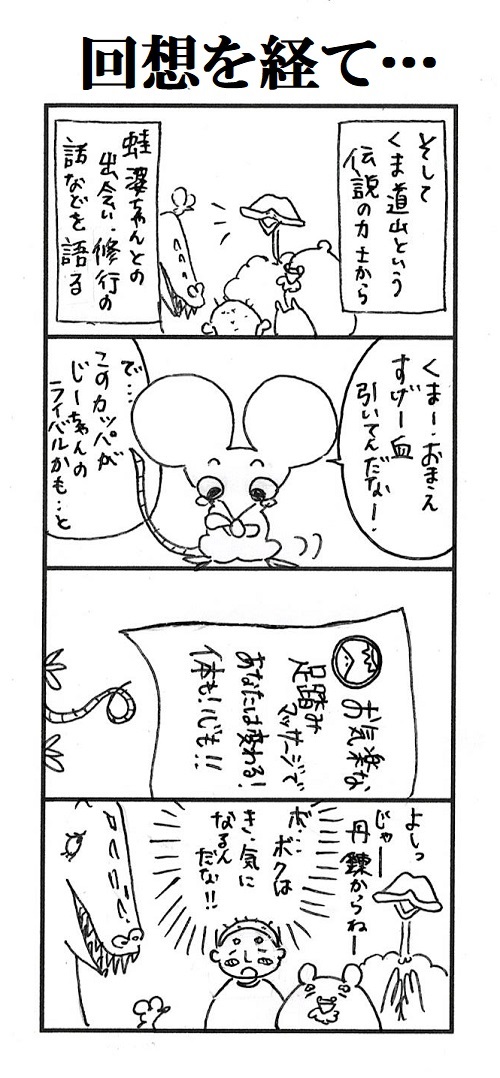 回想を経て…
そして
くま道山という
伝説の力士から
蛙婆ちゃんとの
出会い・修行の
話などを語る
くまー・おまえ
すげー血
引いてんだなー!
で…
このカッパが
じーちゃんの
ライバルかも…と
お気楽な
足踏み
マッサージで
あなたは変わる!
体も!心も!!
よしっ
じゃー
丹錬からねー
ボ…
ボクは
き・気に
なるん
だな!!